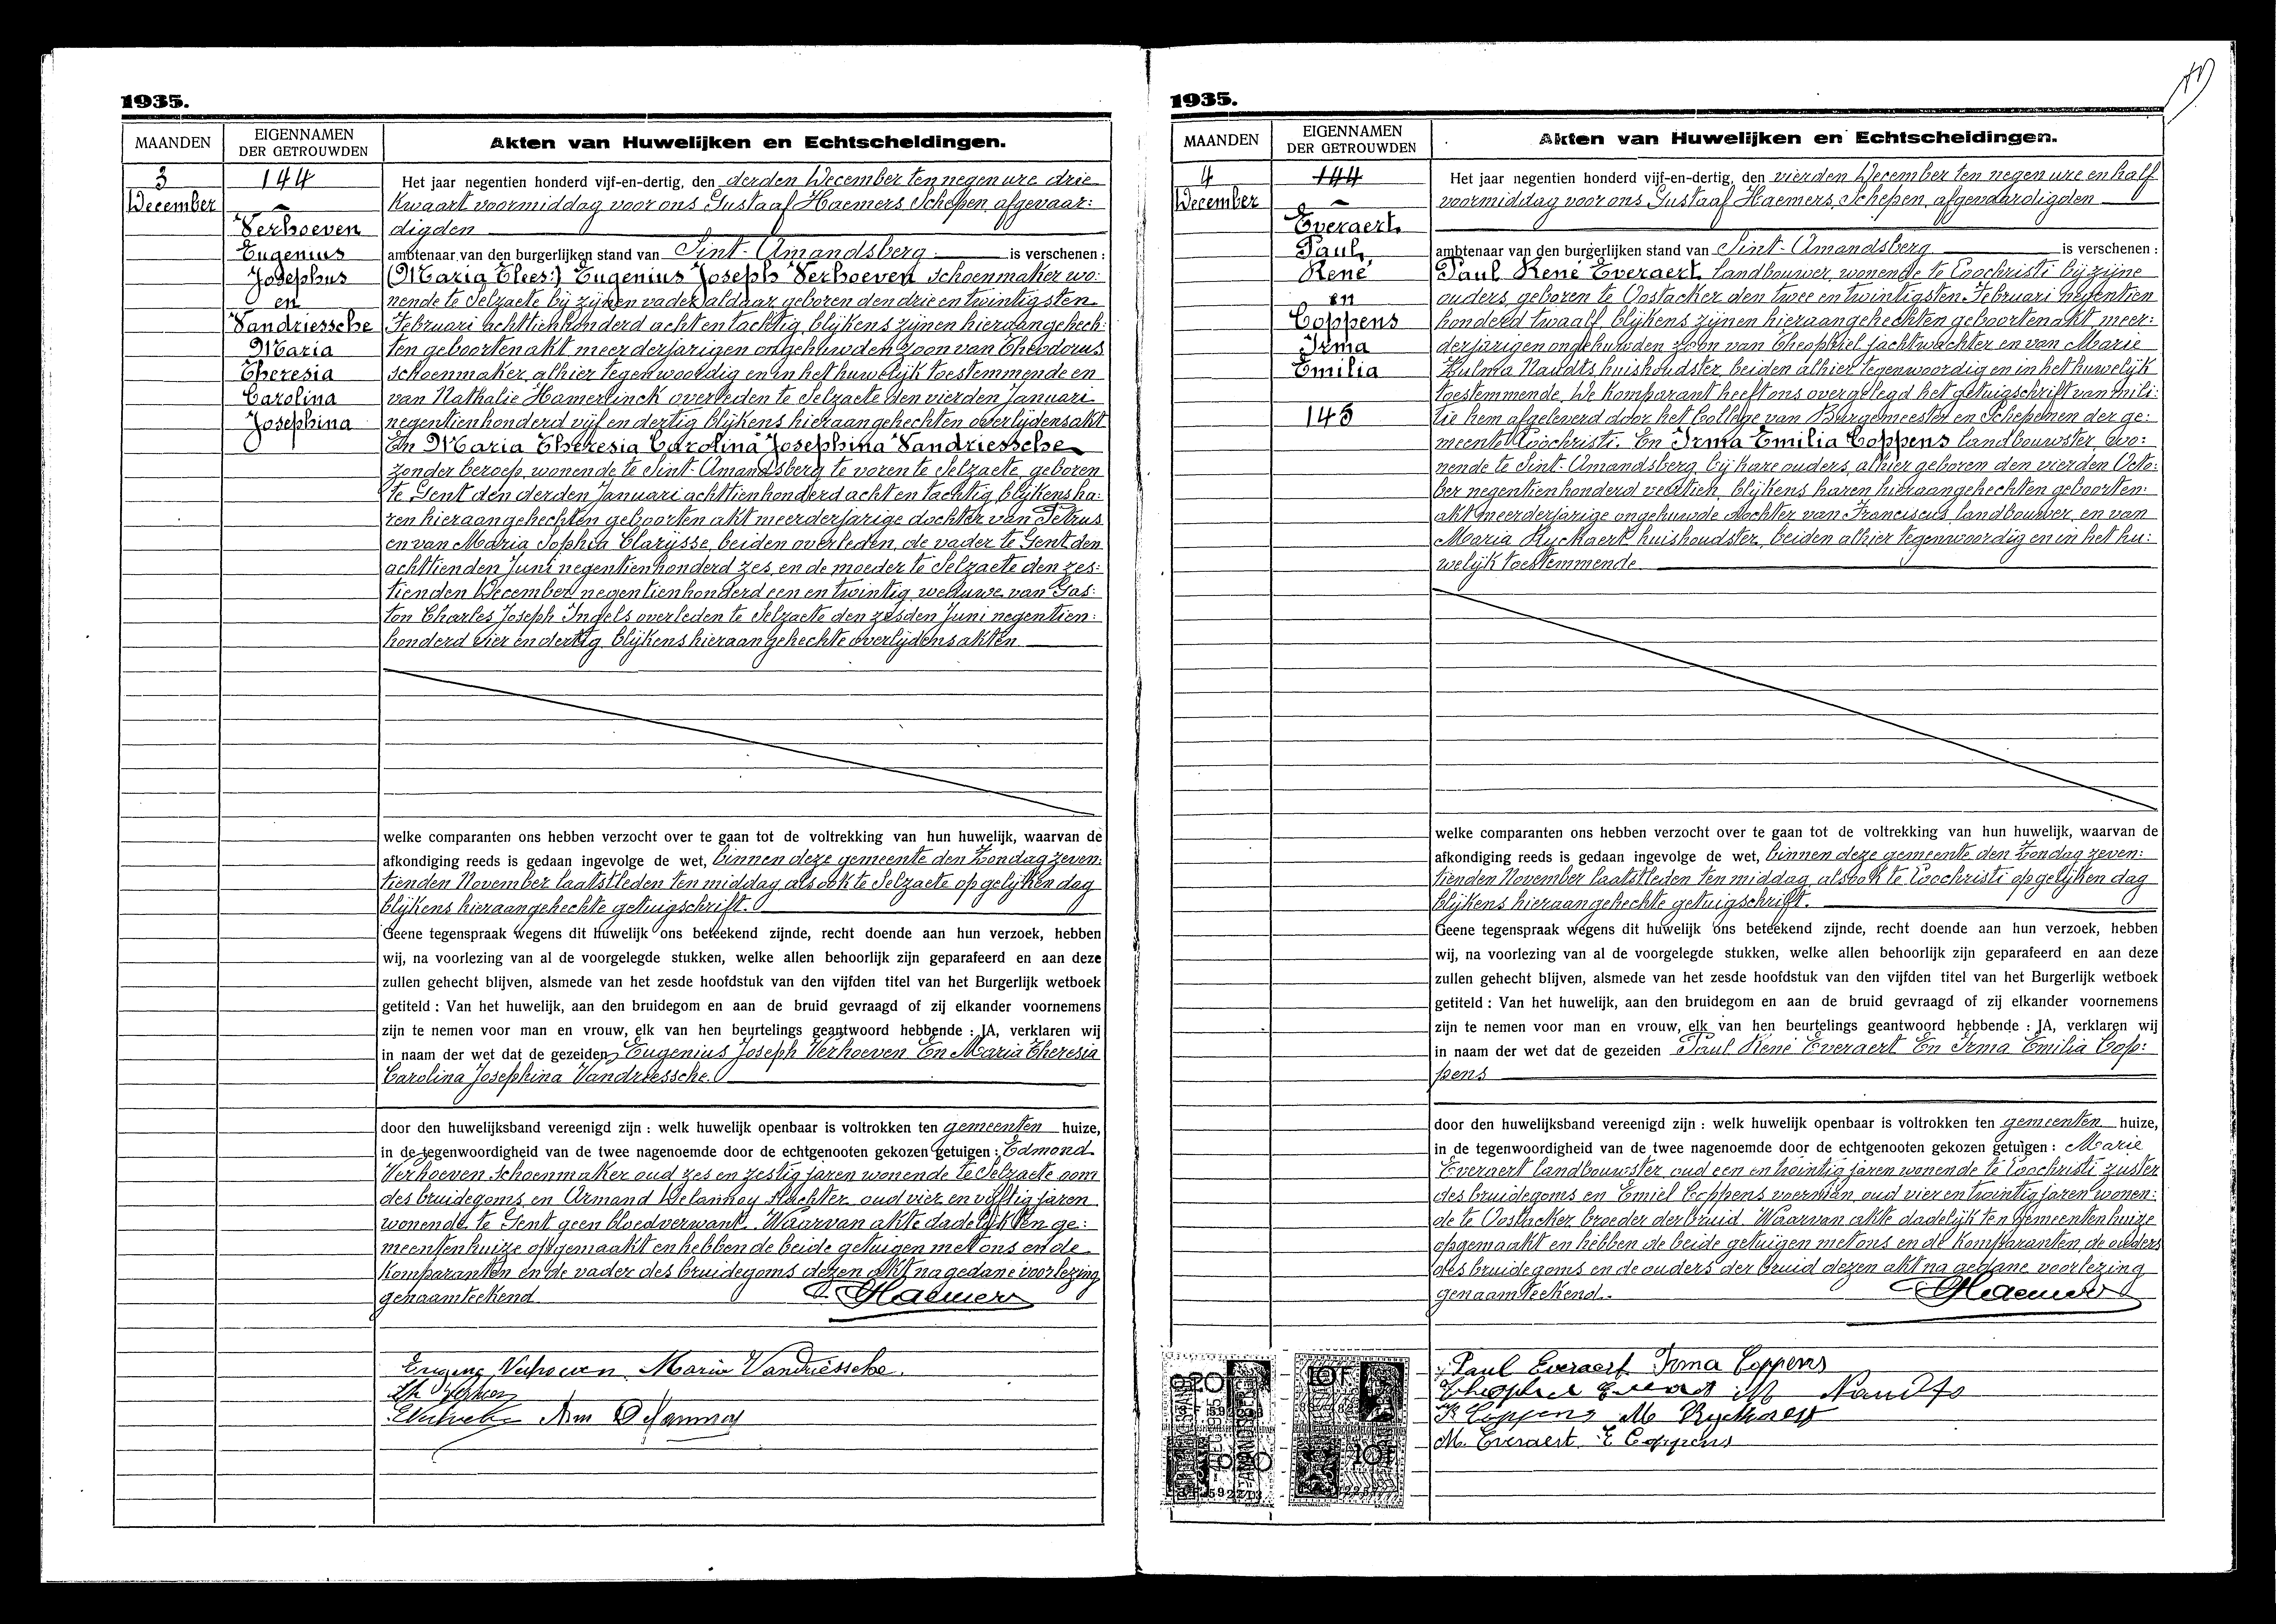 1935.
MAANDEN
EIGENNAMEN
DER GETROUWDEN
Akten van Huwelijken en Echtscheidingen.
3
December
144
Verhoeven
Eugenius
Josephus
en
Vandriessche
Maria
Theresia
Carolina
Josephina
Het jaar negentien honderd vijf-en-dertig, den derden December ten negen ure drie
kwaart voormiddag voor ons Gustaaf Haemers, Schepen, afgevaar:
digden
ambtenaar van den burgerlijken stand van Sint-Amandsberg is verschenen :
(Maria Elees:) Eugenius Joseph Verhoeven schoenmaker wo:
nende te Selzaete bij zijnen vader, aldaar geboren den drie en twintigsten
Februari achttienhonderd acht en tachtig, blijkens zijnen hieraangehech:
ten geboortenakt meerderjarigen ongehuwden zoon van Theodorus
schoenmaker, alhier tegenwoordig en in het huwelijk toestemmende en
van Nathalie Hamerlinck overleden te Selzaete den vierden Januari
negentienhonderd vijf en dertig blijkens hieraangehechten overlijdensakt
En Maria Theresia Carolina Josephina Vandriessche
zonder beroep, wonende te Sint-Amandsberg te voren te Selzaete, geboren
te Gent den derden Januari achttienhonderd acht en tachtig, blijkens ha:
ren hieraangehechten geboorten akt meerderjarige dochter van Petrus
en van Maria Sophia Clarijsse, beiden overleden, de vader te Gent den
achttienden Juni negentienhonderd zes, en de moeder te Selzaete den zes:
tienden December negentienhonderd een en twintig, weduwe van Gas:
ton Charles Joseph Ingels overleden te Selzaete den zesden Juni negentien:
honderd vier en dertig, blijkens hieraangehechte overlijdensakten
welke comparanten ons hebben verzocht over te gaan tot de voltrekking van hun huwelijk, waarvan de
afkondiging reeds is gedaan ingevolge de wet, binnen deze gemeente den Zondag zeven:
tienden November laatstleden ten middag alsook te Selzaete op gelijken dag
blijkens hieraangehechte getuigschrift.
Geene tegenspraak wegens dit huwelijk ons beteekend zijnde, recht doende aan hun verzoek, hebben
wij, na voorlezing van al de voorgelegde stukken, welke allen behoorlijk zijn geparafeerd en aan deze
zullen gehecht blijven, alsmede van het zesde hoofdstuk van den vijfden titel van het Burgerlijk wetboek
getiteld : Van het huwelijk, aan den bruidegom en aan de bruid gevraagd of zij elkander voornemens
zijn te nemen voor man en vrouw, elk van hen beurtelings geantwoord hebbende : JA, verklaren wij
in naam der wet dat de gezeiden Eugenius Joseph Verhoeven En Maria Theresia
Carolina Josephina Vandriessche.
door den huwelijksband vereenigd zijn : welk huwelijk openbaar is voltrokken ten gemeenten huize,
in de tegenwoordigheid van de twee nagenoemde door de echtgenooten gekozen getuigen : Edmond
Verhoeven, schoenmaker oud zes en zestig jaren wonende te Selzaete oom
des bruidegoms, en Armand Delannoy slachter oud vier en vijftig jaren
wonende te Gent geen bloedverwant. Waarvan akte dadelijk ten ge:
meentenhuize opgemaakt en hebben de beide getuigen met ons en de
komparanten en de vader des bruidegoms dezen akt na gedane voorlezing
genaamteekend
G. Haemers
Eugene Verhoeven Maria Vandriessche.
Th Verhoeven
EVerhoeven Arm Delannoy
1935.
MAANDEN
EIGENNAMEN
DER GETROUWDEN
Akten van Huwelijken en Echtscheidingen.
4
December
144
Everaert
Paul,
René
en
Coppens
Irma
Emilia
145
Het jaar negentien honderd vijf-en-dertig, den vierden December ten negen ure en half
voormiddag voor ons Gustaaf Haemers, Schepen, afgevaardigden
ambtenaar van den burgerlijken stand van Sint-Amandsberg is verschenen :
Paul René Everaert landbouwer, wonende te Loochristi bij zijne
ouders, geboren te Oostacker den twee en twintigsten Februari negentien
honderd twaalf, blijkens zijnen hieraangehechten geboortenakt meer:
derjarigen ongehuwden zoon van Theophiel jachtwachter en van Marie
Zulma Naudts huishoudster, beiden alhier tegenwoordig en in het huwelijk
toestemmende. De komparant heeft ons overgelegd het getuigschrift van mili:
tie hem afgeleverd door het College van Burgemeester en Schepenen der ge:
meente Loochristi. En Irma Emilia Coppens landbouwster, wo:
nende te Sint-Amandsberg bij hare ouders, alhier geboren den vierden Octo:
ber negentienhonderd veertien, blijkens haren hieraangehechten geboorten:
akt meerderjarige ongehuwde dochter van Franciscus, landbouwer, en van
Maria Ryckaert huishoudster, beiden alhier tegenwoordig en in het hu:
welijk toestemmende
welke comparanten ons hebben verzocht over te gaan tot de voltrekking van hun huwelijk, waarvan de
afkondiging reeds is gedaan ingevolge de wet, binnen deze gemeente den Zondag zeven:
tienden November laatstleden ten middag, alsook te Loochristi op gelijken dag
blijkens hieraangehechte getuigschrift.
Geene tegenspraak wegens dit huwelijk ons beteekend zijnde, recht doende aan hun verzoek, hebben
wij, na voorlezing van al de voorgelegde stukken, welke allen behoorlijk zijn geparafeerd en aan deze
zullen gehecht blijven, alsmede van het zesde hoofdstuk van den vijfden titel van het Burgerlijk wetboek
getiteld : Van het huwelijk, aan den bruidegom en aan de bruid gevraagd of zij elkander voornemens
zijn te nemen voor man en vrouw, elk van hen beurtelings geantwoord hebbende : JA, verklaren wij
in naam der wet dat de gezeiden Paul René Everaert En Irma Emilia Cop:
pens
door den huwelijksband vereenigd zijn : welk huwelijk openbaar is voltrokken ten gemeenten huize,
in de tegenwoordigheid van de twee nagenoemde door de echtgenooten gekozen getuigen : Marie
Everaert landbouwster, oud een en twintig jaren wonende te Loochristi zuster
des bruidegoms en Emiel Coppens voerman, oud vier en twintig jaren wonen:
de te Oostacker broeder der bruid. Waarvan akte dadelijk ten gemeentenhuize
opgemaakt en hebben de beide getuigen met ons en de komparanten, de ouders
des bruidegoms en de ouders der bruid dezen akt na gedane voorlezing
genaamteekend.
G. Haemers
Paul Everaert Irma Coppens
Theophiel Everaert M Naudts
Fr Coppens M Ryckaert
M. Everaert E Coppens
10F
10F